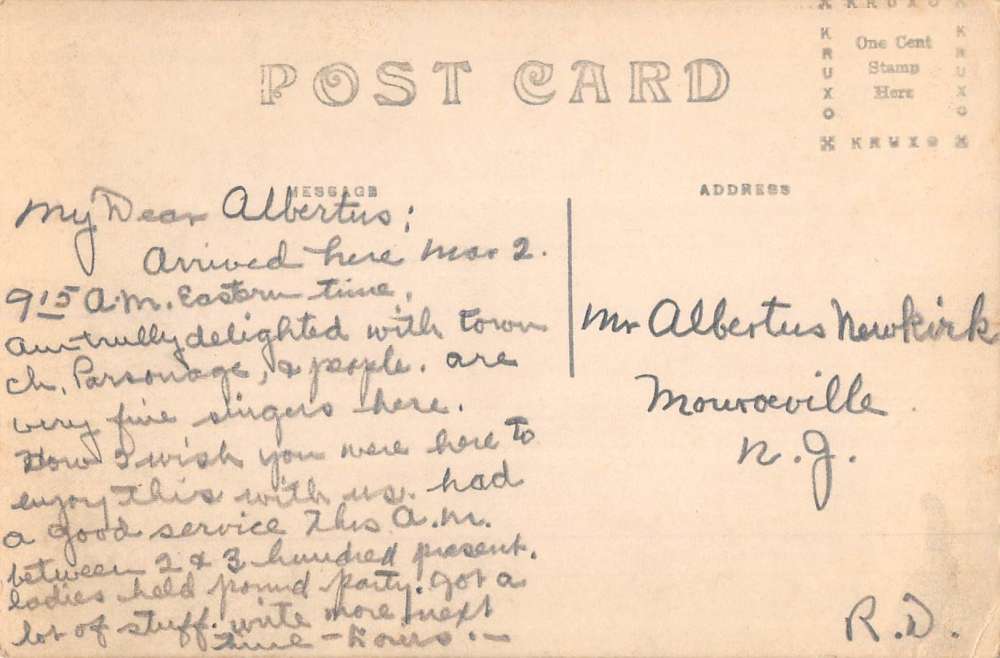 POST CARD
KRUXO
KRUXO
One Cent
Stamp
Here
KRUXO
KRUXO
MESSAGE
ADDRESS
My Dear Albertus;
Arrived here Mar 2.
9 15 A.M. Eastern time,
am trully delighted with town
ch, Parsonage, & people. are
very fine singers here.
How I wish you were here to
enjoy this with us. had
a good service this A.M.
between 2 & 3 hundred present.
ladies held pound party. got a
lot of stuff. write more next
time -
Mr Albertus Newkirk
Monroeville
N.J.
R.D.